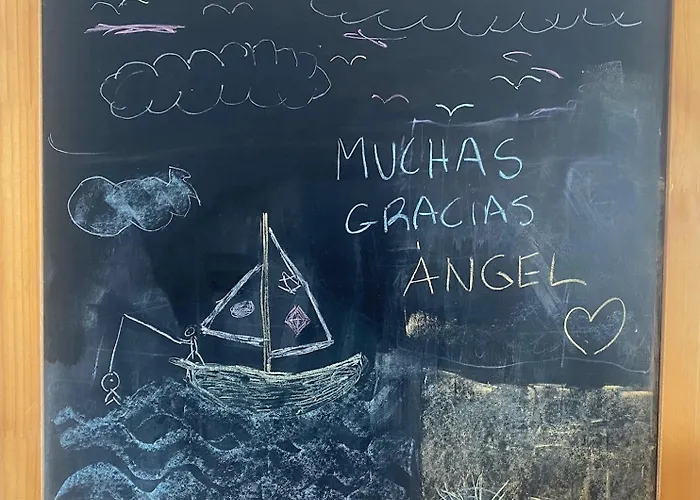 MUCHAS
GRACIAS
ÁNGEL